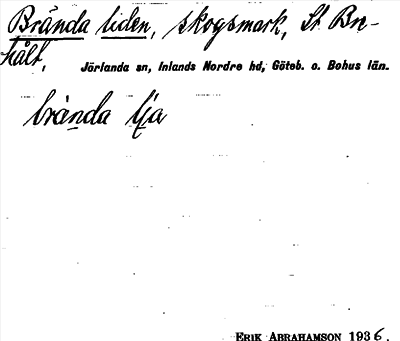 Brända liden, skogsmark, St Bn-
hålt,
Jörlanda sn, Inlands Nordre hd, Göteb. o. Bohus län.
brànda
ERIK ABRAHAMSON 1936.